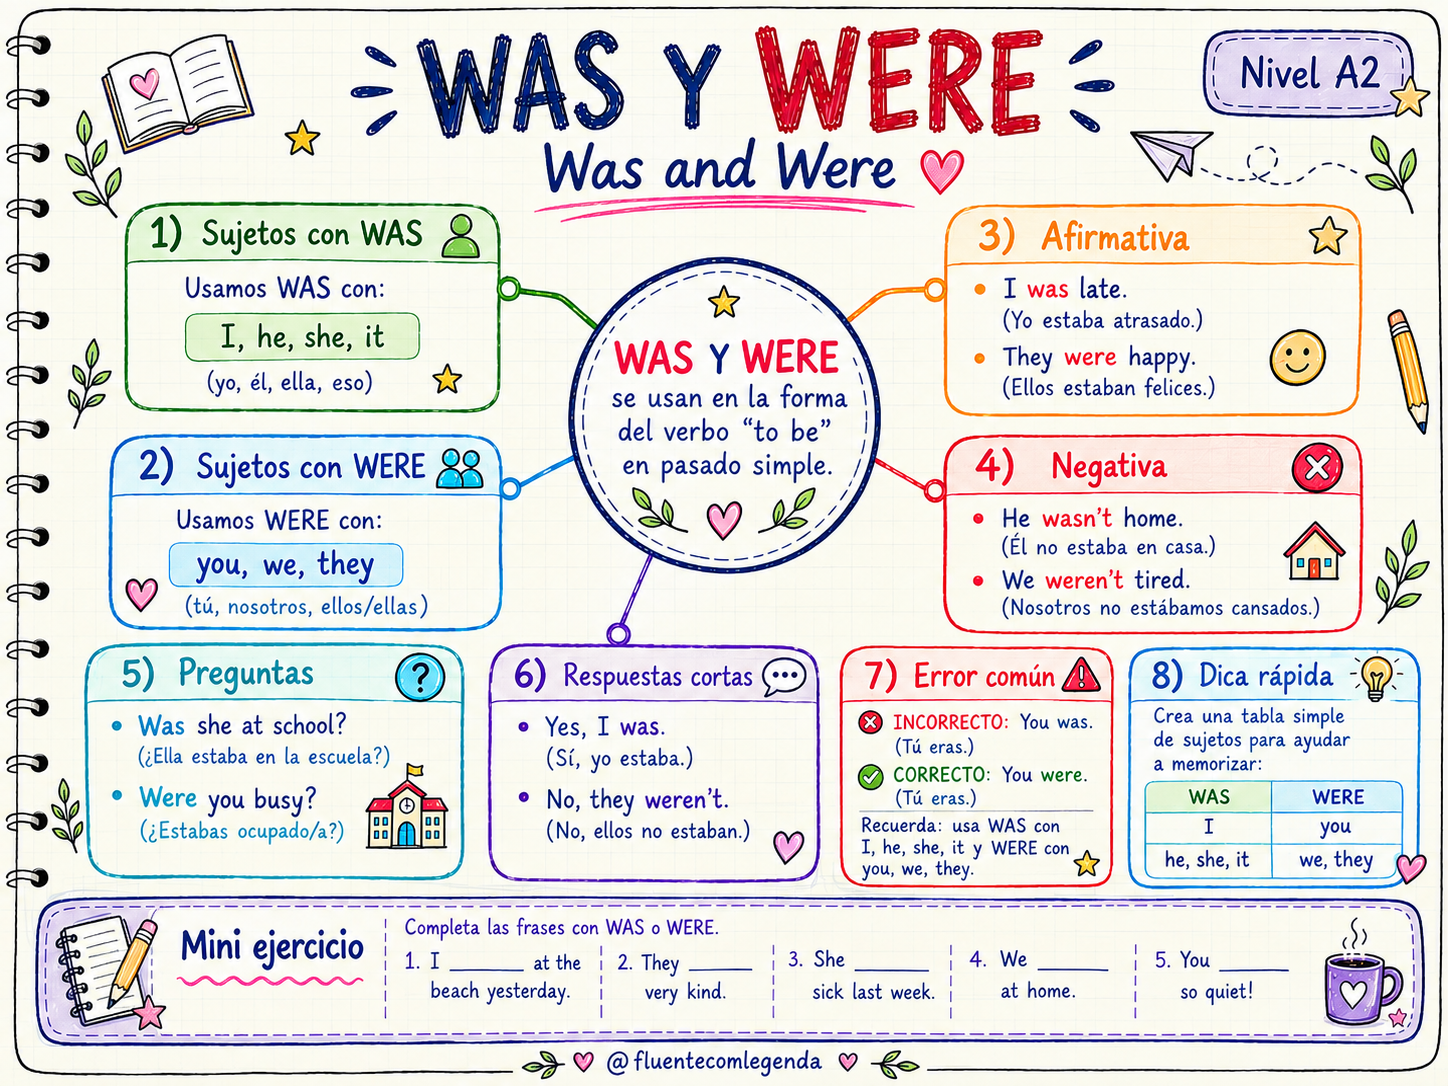 WAS Y WERE
Was and Were
Nivel A2
1) Sujetos con WAS
Usamos WAS con:
I, he, she, it
(yo, él, ella, eso)
2) Sujetos con WERE
Usamos WERE con:
you, we, they
(tú, nosotros, ellos/ellas)
WAS Y WERE
se usan en la forma
del verbo “to be”
en pasado simple.
3) Afirmativa
• I was late.
(Yo estaba atrasado.)
• They were happy.
(Ellos estaban felices.)
4) Negativa
• He wasn't home.
(Él no estaba en casa.)
• We weren't tired.
(Nosotros no estábamos cansados.)
5) Preguntas
• Was she at school?
(¿Ella estaba en la escuela?)
• Were you busy?
(¿Estabas ocupado/a?)
6) Respuestas cortas
• Yes, I was.
(Sí, yo estaba.)
• No, they weren't.
(No, ellos no estaban.)
7) Error común
INCORRECTO: You was.
(Tú eras.)
CORRECTO: You were.
(Tú eras.)
Recuerda: usa WAS con
I, he, she, it y WERE con
you, we, they.
8) Dica rápida
Crea una tabla simple
de sujetos para ayudar
a memorizar:
WAS WERE
I you
he, she, it we, they
Mini ejercicio
Completa las frases con WAS o WERE.
1. I ______ at the
beach yesterday.
2. They ______
very kind.
3. She ______
sick last week.
4. We ______
at home.
5. You ______
so quiet!
@fluentecomlegenda